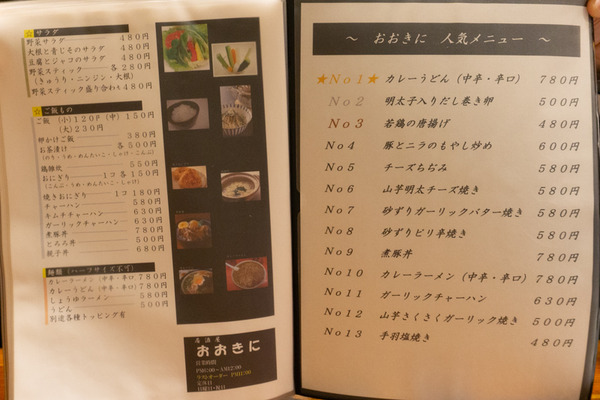 ☆サラダ
野菜サラダ 480円
大根と青じそのサラダ 480円
豆腐とジャコのサラダ 480円
野菜スティック 各280円
(きゅうり・ニンジン・大根)
野菜スティック盛り合わせ 480円
☆ご飯もの
ご飯 (小)120円 (中)150円
(大)230円
卵かけご飯 380円
お茶漬け 各500円
(のり・うめ・めんたいこ・しゃけ・こんぶ)
鶏雑炊 550円
おにぎり 1コ各150円
(こんぶ・うめ・めんたいこ・しゃけ)
焼きおにぎり 1コ180円
チャーハン 580円
キムチチャーハン 630円
ガーリックチャーハン 630円
煮豚丼 780円
とろろ丼 500円
親子丼 680円
麺類(ハーフサイズ不可)
カレーラーメン(中辛・辛口) 780円
カレーうどん(中辛・辛口) 780円
しょうゆラーメン 580円
うどん 500円
別途各種トッピング有
居酒屋
おおきに
営業時間
ラストオーダー
定休日
~ おおきに 人気メニュー ~
★No1★ カレーうどん(中辛・辛口) 780円
No2 明太子入りだし巻き卵 500円
No3 若鶏の唐揚げ 480円
No4 豚とニラのもやし炒め 600円
No5 チーズちぢみ 580円
No6 山芋明太チーズ焼き 580円
No7 砂ずりガーリックバター焼き 580円
No8 砂ずりピリ辛焼き 580円
No9 煮豚丼 780円
No10 カレーラーメン(中辛・辛口) 780円
No11 ガーリックチャーハン 630円
No12 山芋さくさくガーリック焼き 500円
No13 手羽塩焼き 480円